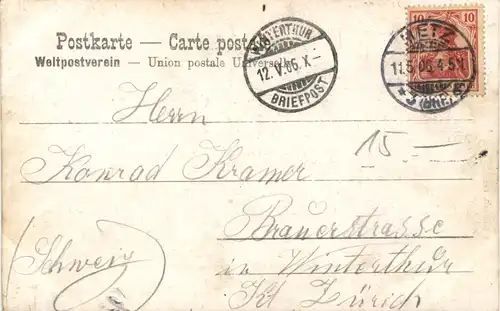 Postkarte — Carte postale
Weltpostverein — Union postale Universelle
WINTERTHUR
12.V.05.X—
BRIEFPOST
10 10
METZ
11.5.05.4-5N
Herrn
15 —
Konrad Kramer
Brauerstrasse
(Schweiz)
in Winterthur
Kt Zürich